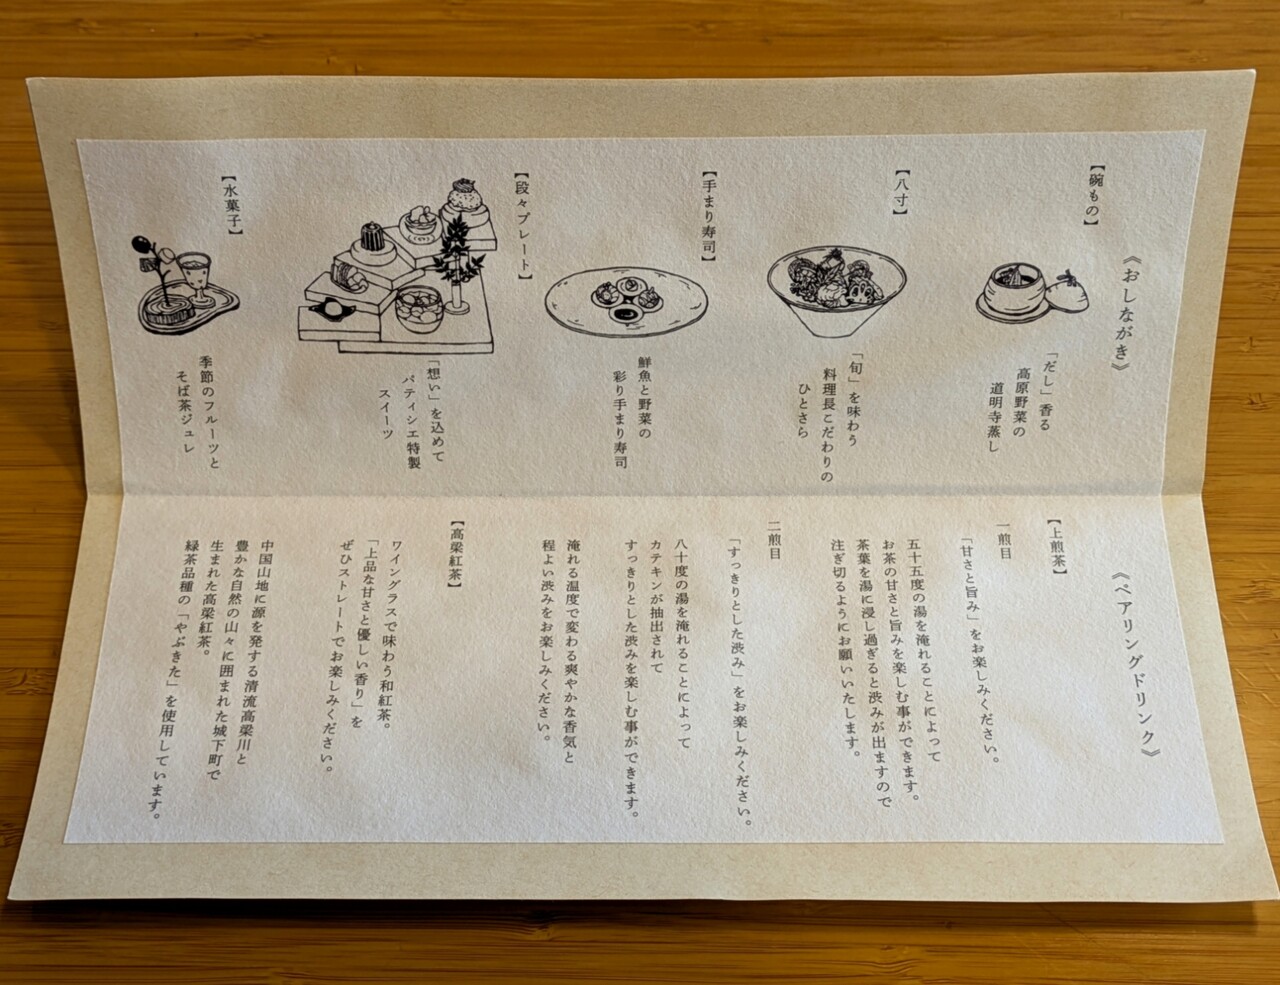 《おしながき》
【碗もの】
「だし」香る
高原野菜の
道明寺蒸し
【八寸】
「旬」を味わう
料理長こだわりの
ひとさら
【手まり寿司】
鮮魚と野菜の
彩り手まり寿司
【段々プレート】
「想い」を込めて
パティシエ特製
スイーツ
【水菓子】
季節のフルーツと
そば茶ジュレ
《ペアリングドリンク》
【上煎茶】
一煎目
「甘さと旨み」をお楽しみください。
五十五度の湯を淹れることによって
お茶の甘さと旨みを楽しむ事ができます。
茶葉を湯に浸し過ぎると渋みが出ますので
注ぎ切るようにお願いいたします。
二煎目
「すっきりとした渋み」をお楽しみください。
八十度の湯を淹れることによって
カテキンが抽出されて
すっきりとした渋みを楽しむ事ができます。
淹れる温度で変わる爽やかな香気と
程よい渋みをお楽しみください。
【高梁紅茶】
ワイングラスで味わう和紅茶。
「上品な甘さと優しい香り」を
ぜひストレートでお楽しみください。
中国山地に源を発する清流高梁川と
豊かな自然の山々に囲まれた城下町で
生まれた高梁紅茶。
緑茶品種の「やぶきた」を使用しています。